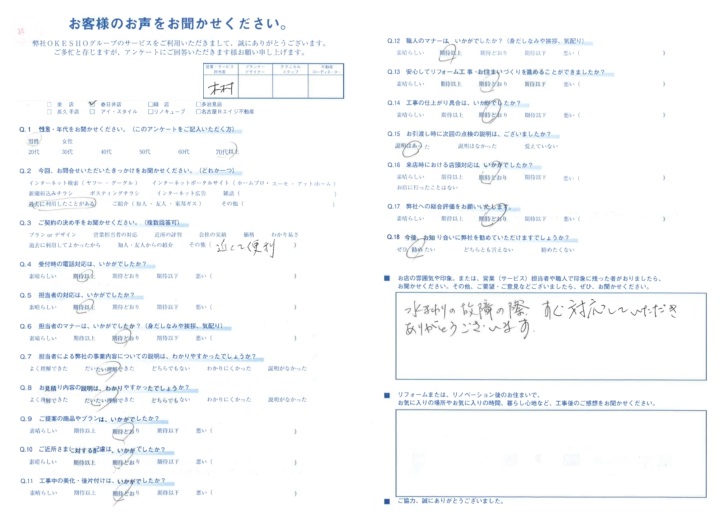 お客様のお声をお聞かせください。
弊社OKESHOグループのサービスをご利用いただきまして、誠にありがとうございます。
ご多忙と存じますが、アンケートにご回答いただきます様お願い申し上げます。
木村
□ 本 店 □ 春日井店 □ 緑 店 □ 多治見店
□ 長久手店 □ アイ・スタイル □ リノキューブ □ 名古屋Rエイジ不動産
Q.1 性別・年代をお聞かせください。（このアンケートをご記入いただく方）
男性 女性
20代 30代 40代 50代 60代 70代以上
Q.2 今回、お問合せいただいたきっかけをお聞かせください。（どれか一つ）
インターネット検索（ヤフー・グーグル） インターネットポータルサイト（ホームプロ・スーモ・アットホーム）
新聞折込みチラシ ポスティングチラシ インターネット広告 雑誌（ ）
過去に利用したことがある ご紹介（知人・友人・東邦ガス） その他（ ）
Q.3 ご契約の決め手をお聞かせください。（複数回答可）
プラン or デザイン 営業担当者の対応 近所の評判 会社の実績 価格 わかり易さ
過去に利用してよかったから 知人・友人からの紹介 その他（ 近くて便利
Q.4 受付時の電話対応は、いかがでしたか？
素晴らしい 期待以上 期待どおり 期待以下 悪い（ ）
Q.5 担当者の対応は、いかがでしたか？
素晴らしい 期待以上 期待どおり 期待以下 悪い（ ）
Q.6 担当者のマナーは、いかがでしたか？（身だしなみや挨拶、気配り）
素晴らしい 期待以上 期待どおり 期待以下 悪い（ ）
Q.7 担当者による弊社の事業内容についての説明は、わかりやすかったでしょうか？
よく理解できた だいたい理解できた どちらでもない わかりにくかった 説明がなかった
Q.8 お見積り内容の説明は、わかりやすかったでしょうか？
よく理解できた だいたい理解できた どちらでもない わかりにくかった 説明がなかった
Q.9 ご提案の商品やプランは、いかがでしたか？
素晴らしい 期待以上 期待どおり 期待以下 悪い（ ）
Q.10 ご近所さまに対する配慮は、いかがでしたか？
素晴らしい 期待以上 期待どおり 期待以下 悪い（ ）
Q.11 工事中の美化・後片付けは、いかがでしたか？
素晴らしい 期待以上 期待どおり 期待以下 悪い（ ）
Q.12 職人のマナーは、いかがでしたか？（身だしなみや挨拶、気配り）
素晴らしい 期待以上 期待どおり 期待以下 悪い（ ）
Q.13 安心してリフォーム工事・お住まいづくりを進めることができましたか？
素晴らしい 期待以上 期待どおり 期待以下 悪い（ ）
Q.14 工事の仕上がり具合は、いかがでしたか？
素晴らしい 期待以上 期待どおり 期待以下 悪い（ ）
Q.15 お引渡し時に次回の点検の説明は、ございましたか？
説明はあった 説明はなかった 覚えていない
Q.16 来店時における店頭対応は、いかがでしたか？
素晴らしい 期待以上 期待どおり 期待以下 悪い（ ）
お店に行ったことはない
Q.17 弊社への総合評価をお願いいたします。
素晴らしい 期待以上 期待どおり 期待以下 悪い（ ）
Q.18 今後、お知り合いに弊社を勧めていただけますでしょうか？
ぜひ勧めたい どちらとも言えない 勧めたくない
■ お店の雰囲気や印象、または、営業（サービス）担当者や職人で印象に残った者がおりましたら、
お聞かせください。その他、ご要望・ご意見などございましたら、ぜひ、お聞かせください。
水まわりの故障の際、すぐ対応していただき
ありがとうございます。
■ リフォームまたは、リノベーション後のお住まいで、
お気に入りの場所やお気に入りの時間、暮らし心地など、工事後のご感想をお聞かせください。
■ ご協力、誠にありがとうございました。